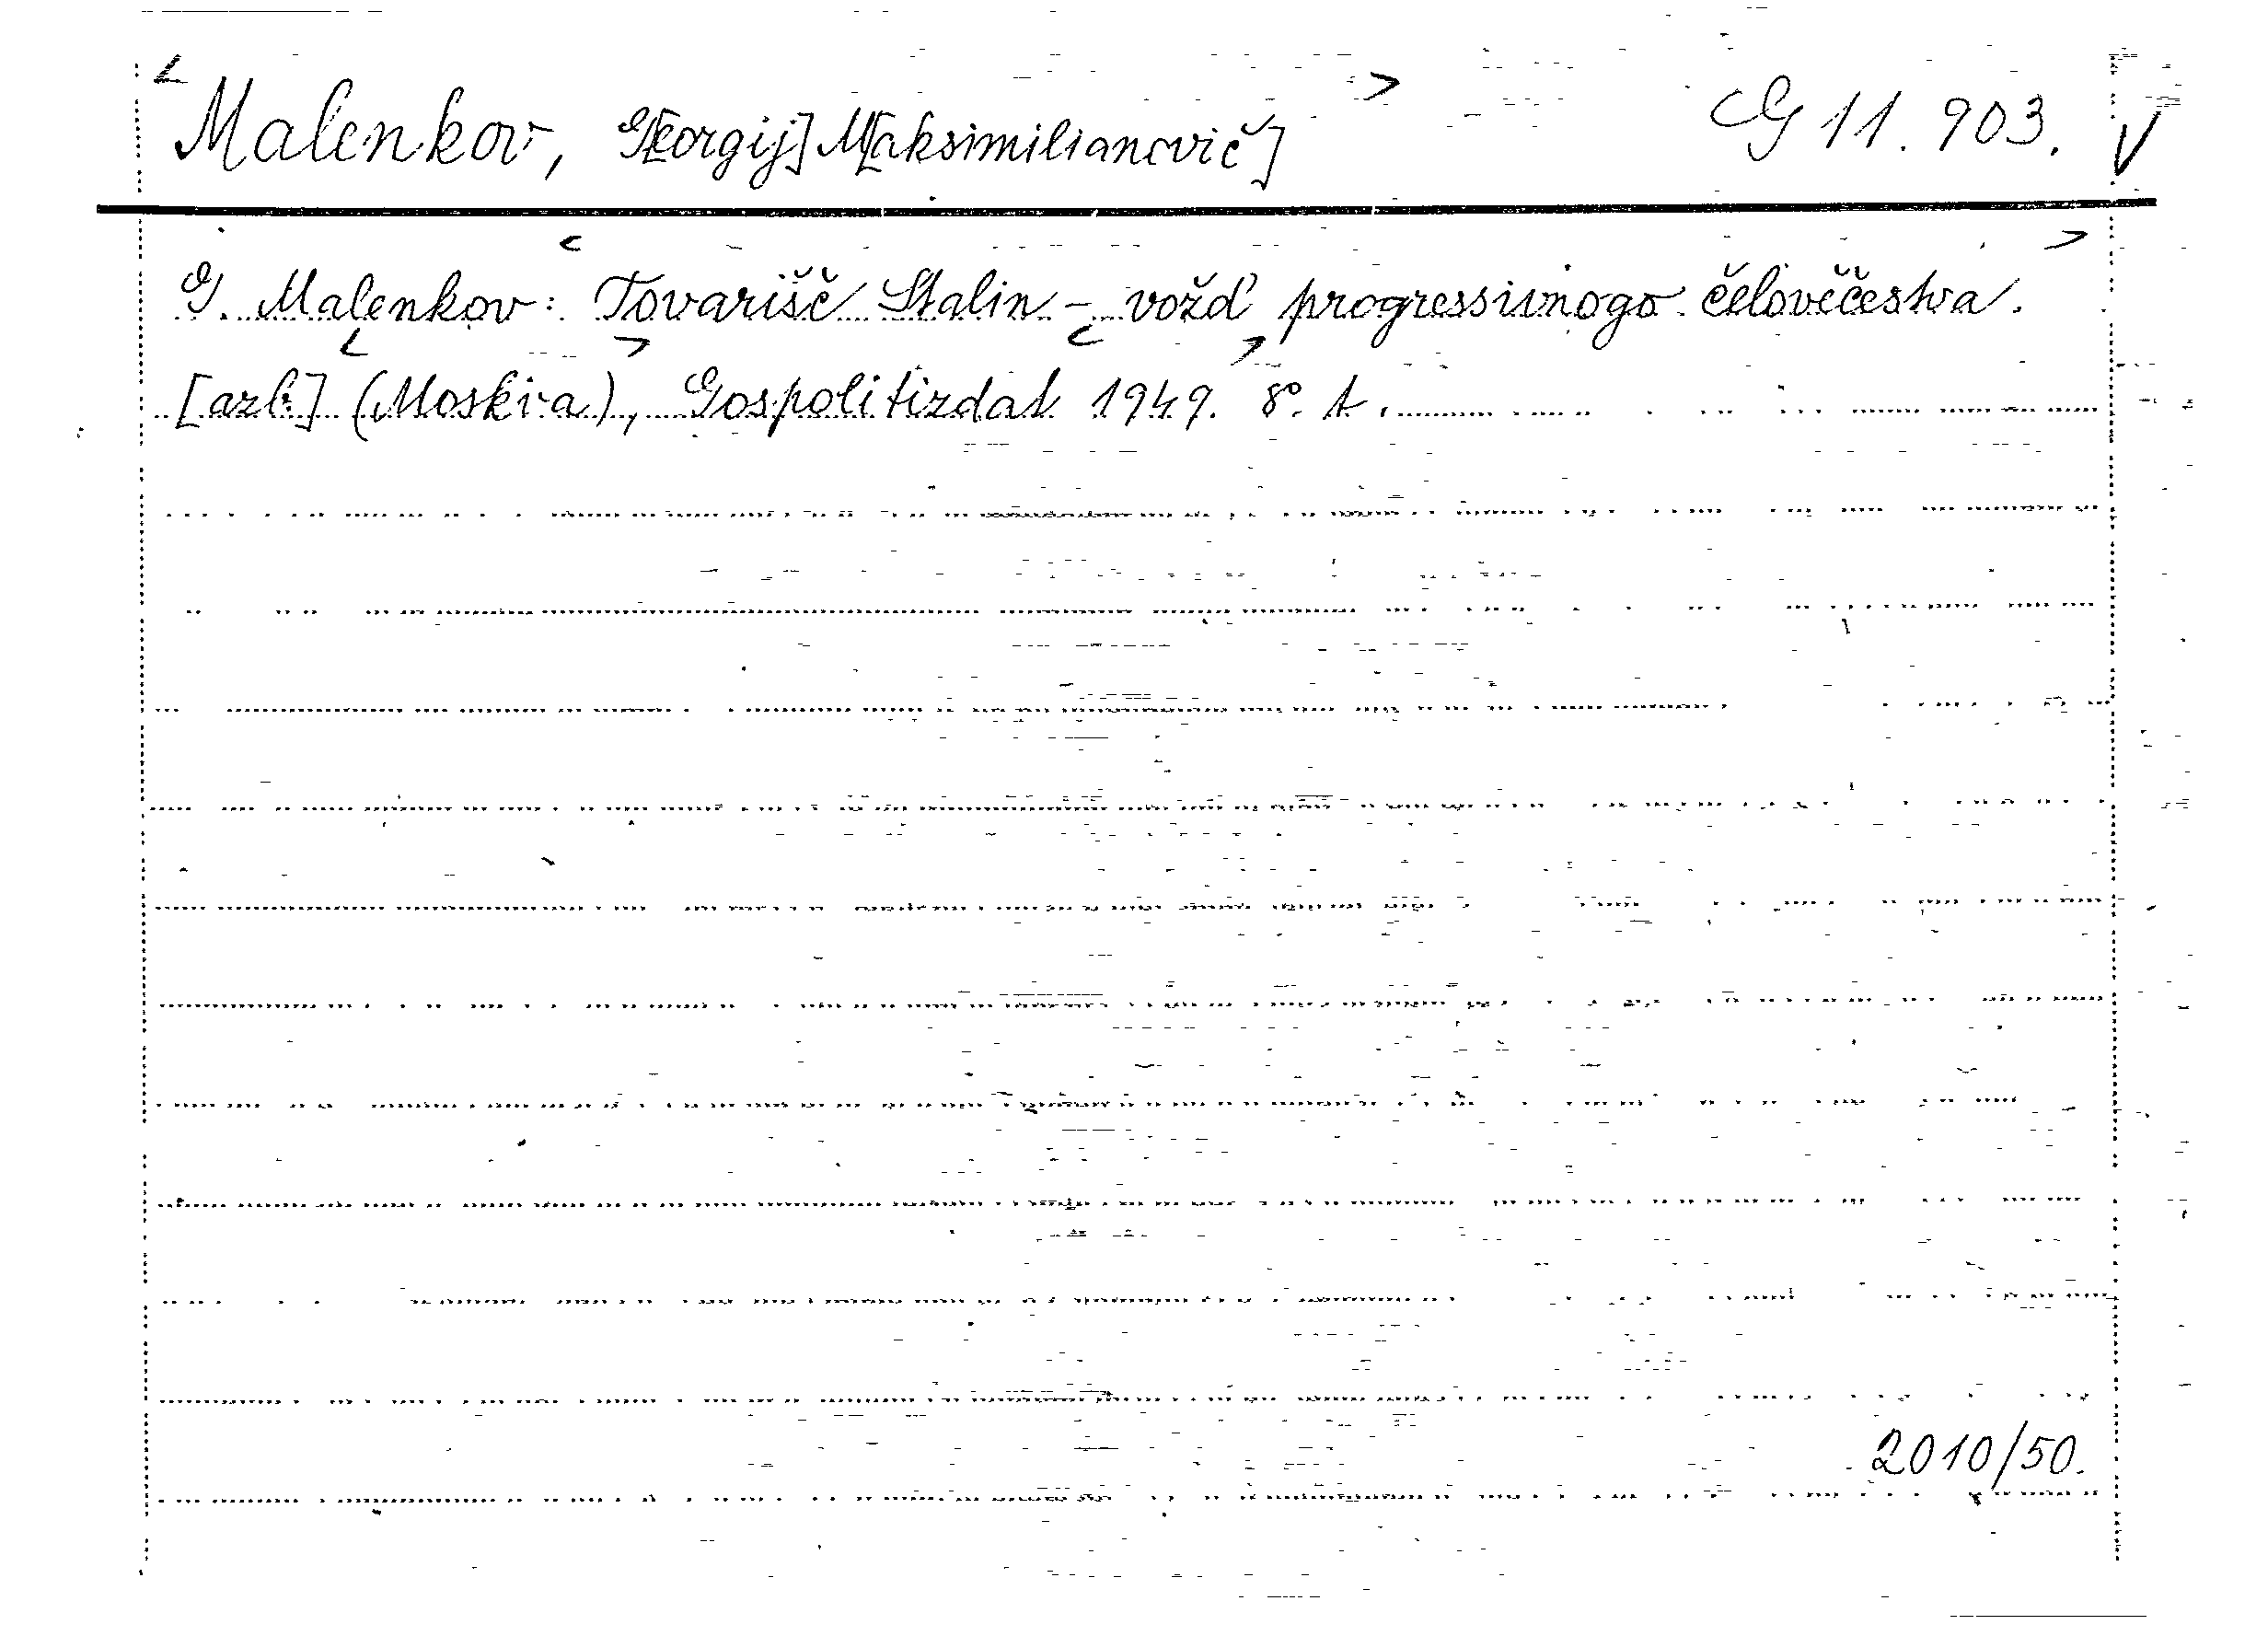 <Malenkov, G[eorgij] M[aksimilianovič]> G 11.903. V
G. Malenkov: <Tovarišč Stalin – vožď progressivnogo čelověčestva.>
[azb.] <(Moskva)>, Gospolitizdat <1949.> 8°. t.
2010/50.